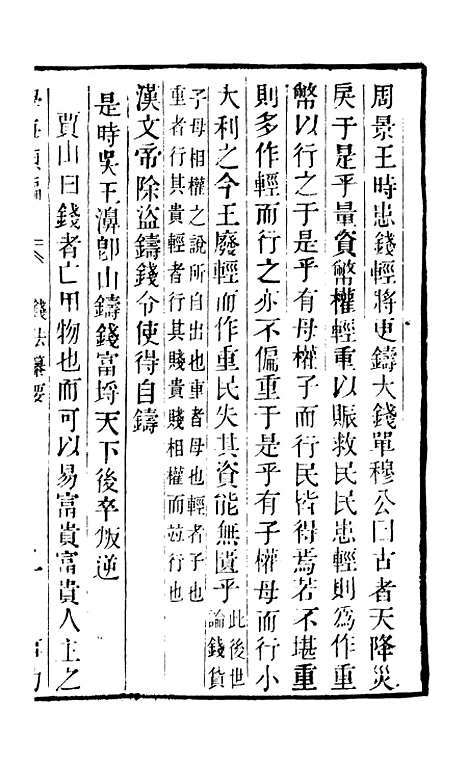 周景王時患錢輕將更鑄大錢單穆公曰古者天降災
戾于是乎量資幣權輕重以賑救民民患輕則為作重
幣以行之于是乎有母權子而行民皆得焉若不堪重
則多作輕而行之亦不偏重于是乎有子權母而行小
大利之今王廢輕而作重民失其資能無匱乎此後世
論錢貨
子母相權之說所自出也重者母也輕者子也
重者行其貴輕者行其賤貴賤相權而竝行也
漢文帝除盜鑄錢令使得自鑄
是時吳王濞卽山鑄錢富埓天下後卒叛逆
賈山曰錢者亡用物也而可以易富貴富貴人主之
學海類編 錢法纂要